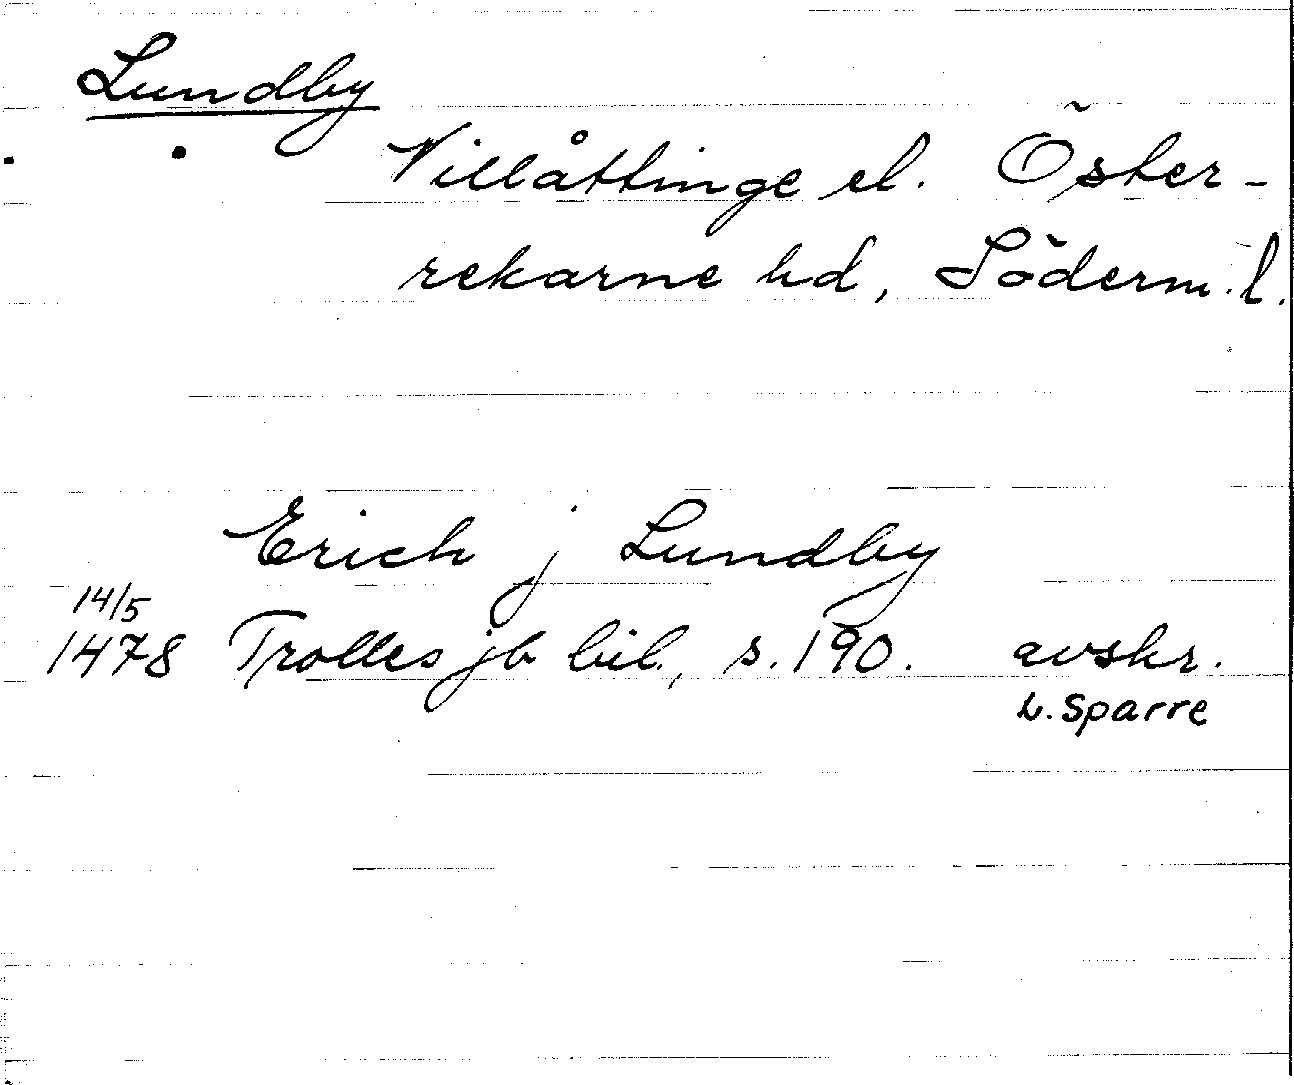 Lundby
Villåttinge el. Öster-
rekarne hd, Söderm. l.
Erich j Lundby
14/5
1478 Trolles jb bil., s. 190. avskr.
L. Sparre